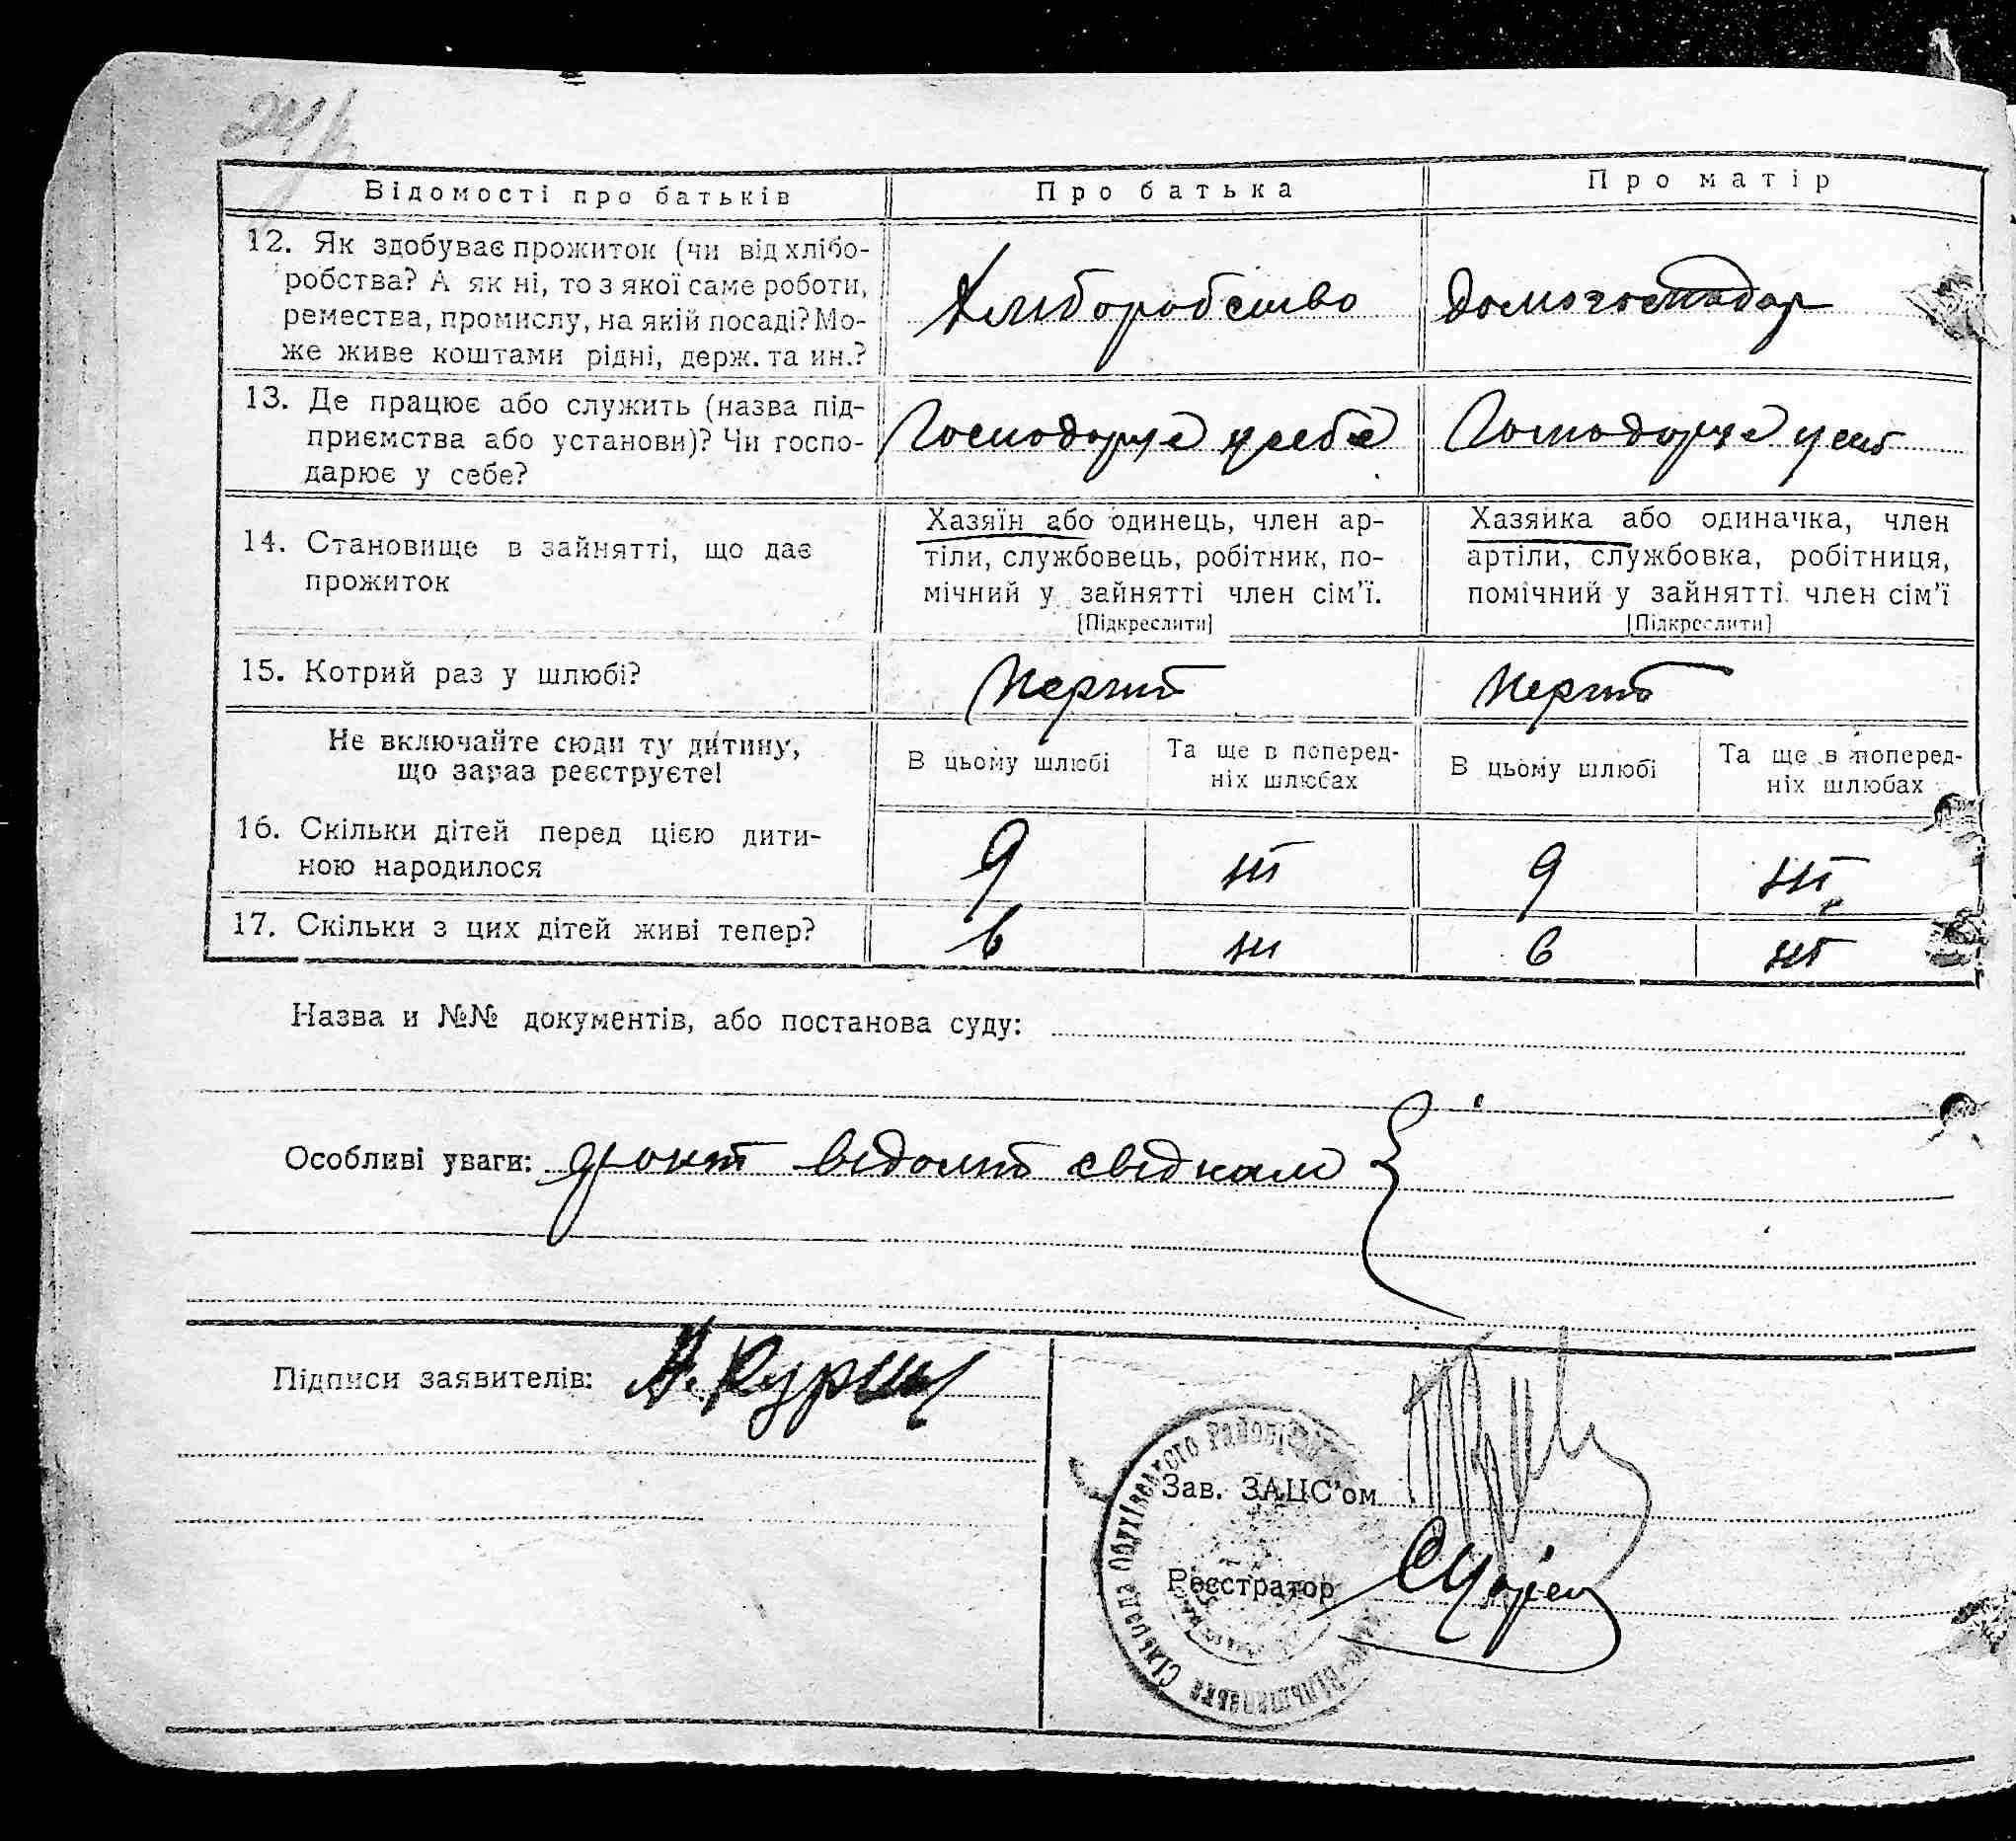 Відомості про батьків
Про батька
Про матір
12. Як здобуває прожиток (чи від хлібо-
робства? А як ні, то з якої саме роботи,
ремества, промислу, на якій посаді? Мо-
же живе коштами рідні, держ. та ин.?
Хліборобство
Домогосподар
13. Де працює або служить (назва під-
приємства або установи)? Чи госпо-
дарює у себе?
Господарує у себе
Господарує у себе
14. Становище в зайнятті, що дає
прожиток
Хазяїн або одинець, член ар-
тіли, службовець, робітник, по-
мічний у зайнятті член сім'ї.
[Підкреслити]
Хазяйка або одиначка, член
артіли, службовка, робітниця,
помічний у зайнятті член сім'ї
[Підкреслити]
15. Котрий раз у шлюбі?
Перший
Перший
Не включайте сюди ту дитину,
що зараз реєструєте!
В цьому шлюбі
Та ще в поперед-
ніх шлюбах
В цьому шлюбі
Та ще в поперед-
ніх шлюбах
16. Скільки дітей перед цією дити-
ною народилося
9
ні
9
ні
17. Скільки з цих дітей живі тепер?
6
ні
6
ні
Назва и №№ документів, або постанова суду:
Особливі уваги: факт відомий свідкам
Підписи заявителів:
Зав. ЗАЦС'ом
Реєстратор
Сільрада Обухівського